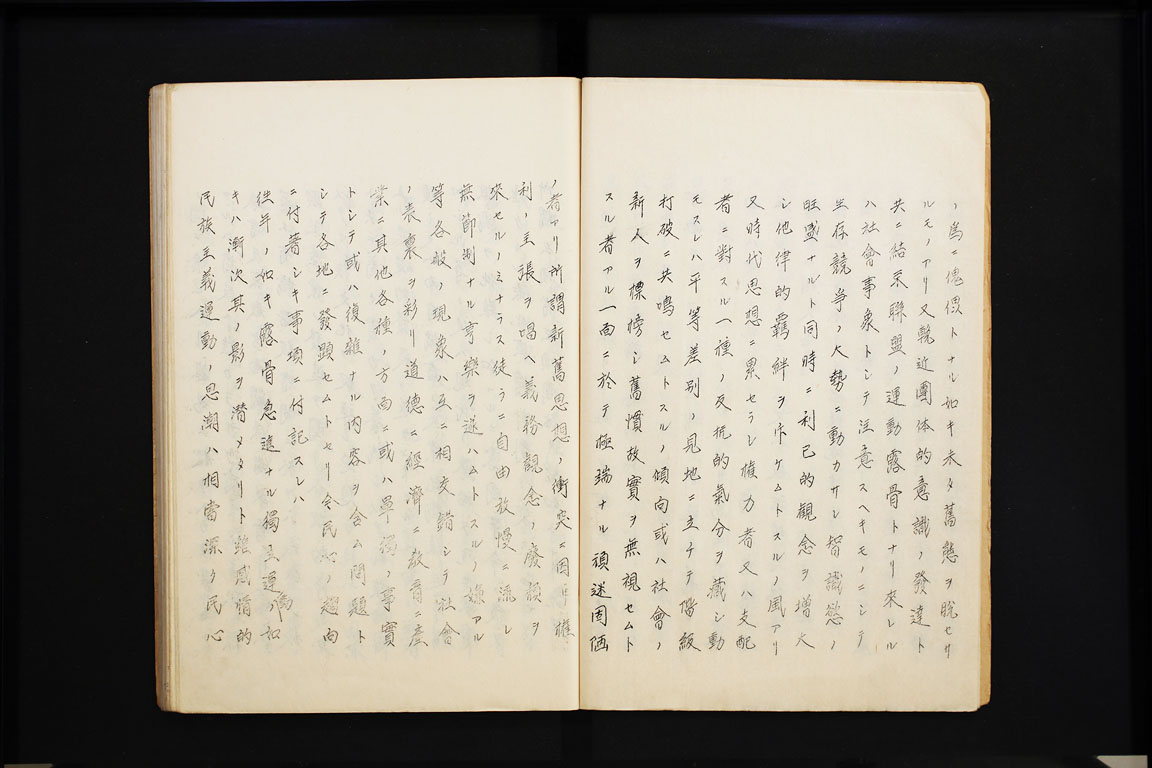 ノ為ニ傀儡トナル如キ未タ舊態ヲ脱セサ
ルモノアリ又輓近團体的意識ノ發達ト
共ニ結束聯盟ノ運動露骨トナリ來レル
ハ社會事象トシテ注意スヘキモノニシテ
生存競争ノ大勢ニ動カサレ智識慾ノ
旺盛ナルト同時ニ利己的觀念ヲ増大
シ他律的羈絆ヲ斥ケムトスルノ風アリ
又時代思想ニ累セラレ權力者又ハ支配
者ニ對スル一種ノ反抗的氣分ヲ藏シ動
モスレハ平等差別ノ見地ニ立チテ階級
打破ニ共鳴セムトスルノ傾向或ハ社會ノ
新人ヲ標榜シ舊慣故實ヲ無視セムト
スル者アル一面ニ於テ極端ナル頑迷固陋
ノ者アリ所謂新舊思想ノ衝突ニ因シ權
利ノ主張ヲ唱ヘ義務觀念ノ廢頽ヲ
來セルノミナラス徒ラニ自由放慢ニ流レ
無節制ナル享樂ヲ逐ハムトスルノ嫌アル
等各般ノ現象ハ互ニ相交錯シテ社會
ノ表裏ヲ彩リ道德ニ經濟ニ教育ニ産
業ニ其他各種ノ方面ニ或ハ單獨ノ事實
トシテ或ハ復雜ナル内容ヲ含ム問題ト
シテ各地ニ發顕セムトセリ今民心ノ趨向
ニ付著シキ事項ニ付記スレハ
往年ノ如キ露骨急進ナル獨立運動ノ如
キハ漸次其ノ影ヲ潜メタリト雖感情的
民族主義運動ノ思潮ハ相當深ク民心